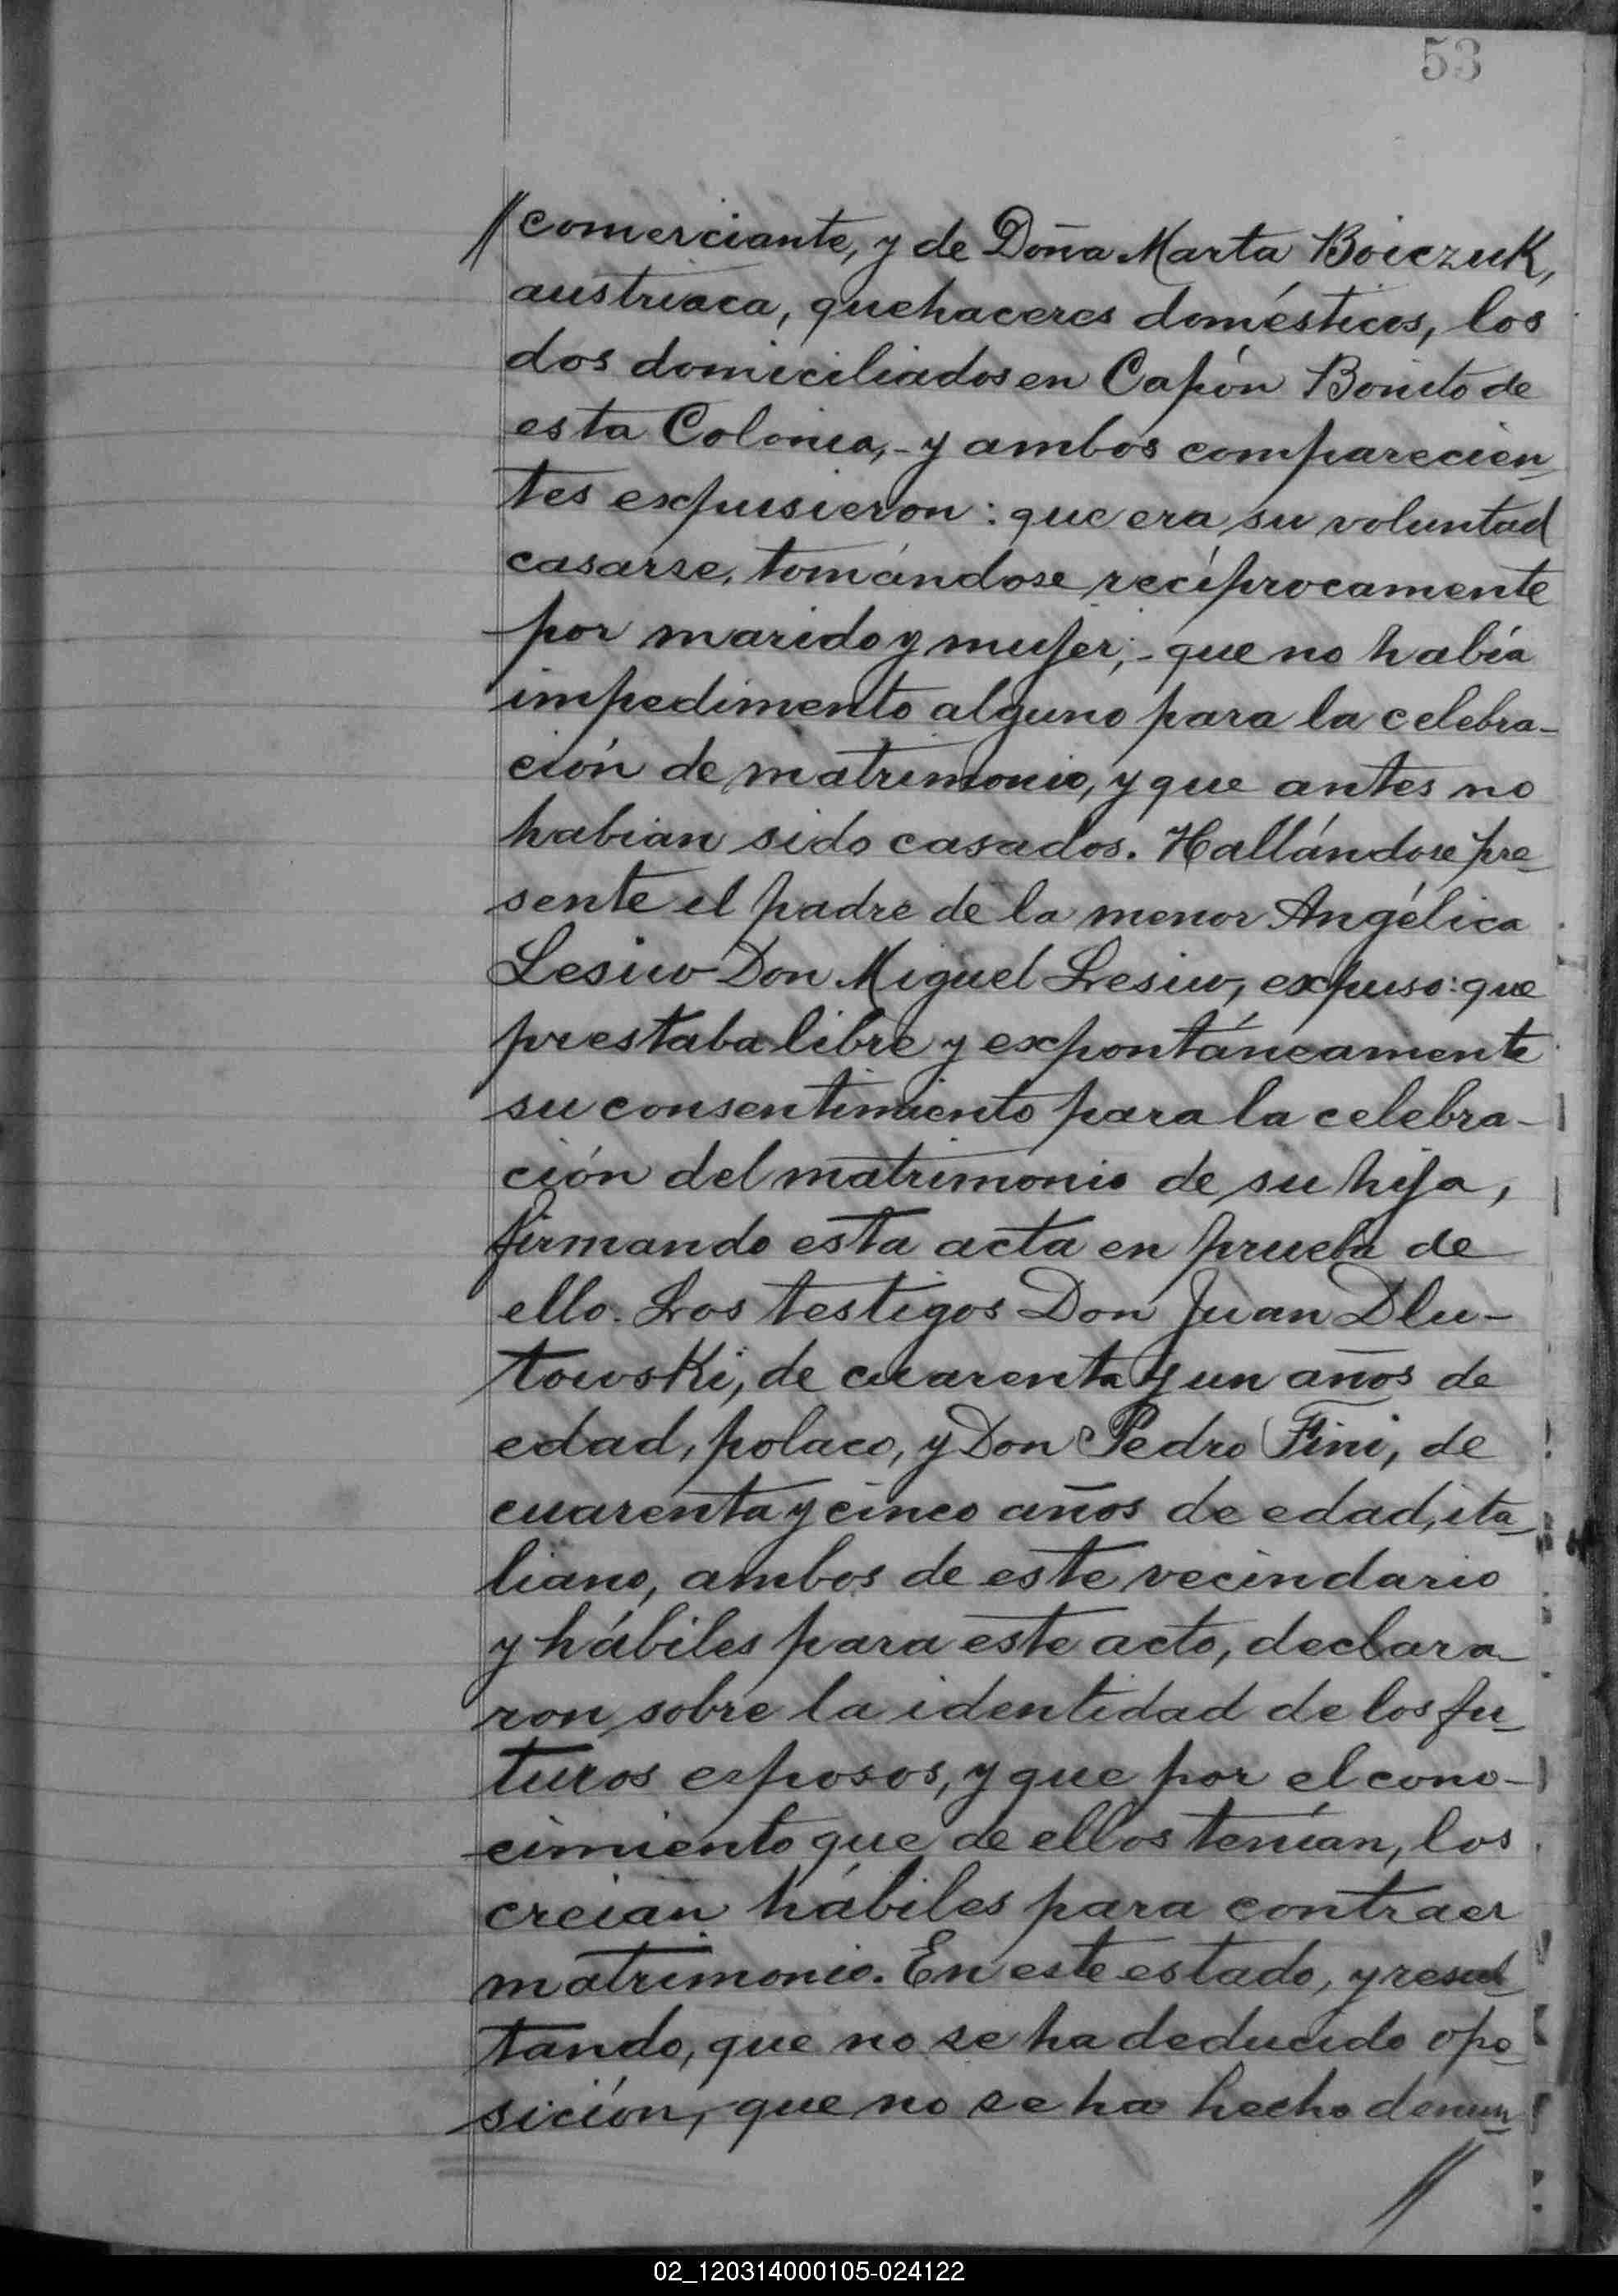 53
//comerciante, y de Doña Marta Boiczuk,
austriaca, quehaceres domésticos, los
dos domiciliados en Capón Bonito de
esta Colonia,- y ambos comparecien_
tes expusieron: que era su voluntad
casarse, tomándose recíprocamente
por marido y mujer;- que no había
impedimento alguno para la celebra-
ción de matrimonio, y que antes no
habian sido casados. Hallándose pre_
sente el padre de la menor Angélica
Lesiw Don Miguel Lesiw, expuso: que
prestaba libre y expontáneamente
su consentimiento para la celebra-
ción del matrimonio de su hija,
firmando esta acta en prueba de
ello. Los testigos Don Juan Dlu-
towski, de cuarenta y un años de
edad, polaco, y Don Pedro Fini, de
cuarenta y cinco años de edad, ita_
liano, ambos de este vecindario
y hábiles para este acto, declara_
ron sobre la identidad de los fu_
turos esposos, y que por el cono-
cimiento que de ellos tenían, los
creían hábiles para contraer
matrimonio. En este estado, y resul_
tando, que no se ha deducido opo_
sición, que no se ha hecho denun_
//
02_120314000105-024122